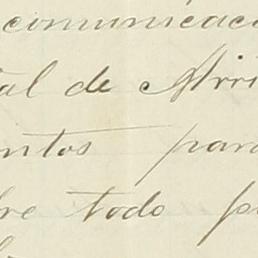 comunicac
tal de Arri
entos para
bre todo p